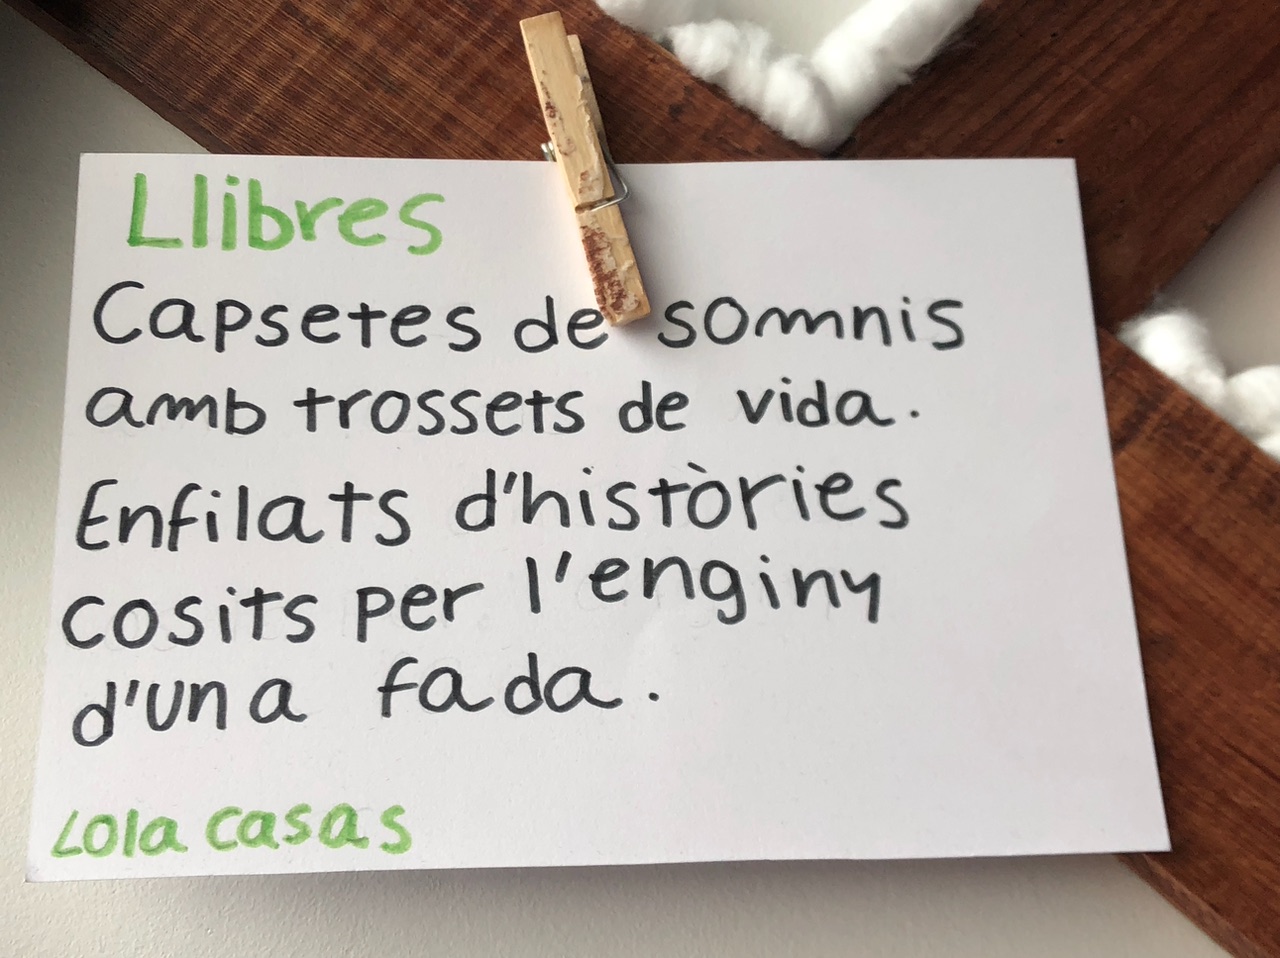 Llibres
Capsetes de somnis
amb trossets de vida.
Enfilats d'històries
cosits per l'enginy
d'una fada.
Lola casas